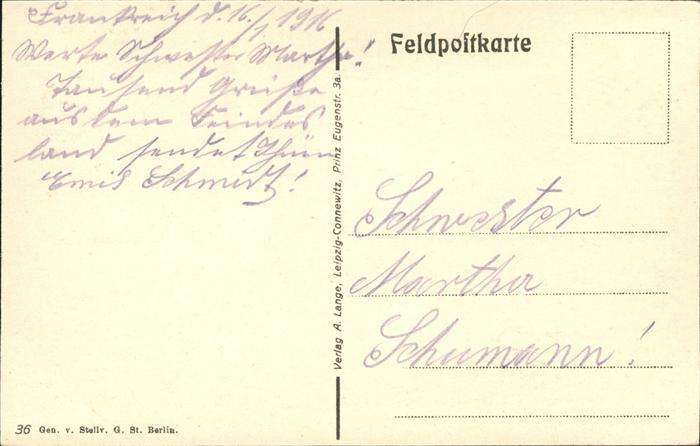 Frankreich d. 16/1 1916
Werte Schwester Martha!
Tausend Grüße
aus dem Feindes
land sendet Ihnen
Emil Schmidt!
Feldpostkarte
Schwester
Martha
Schumann!
Verlag A. Lange, Leipzig-Connewitz, Prinz Eugenstr. 3a.
36 Gen. v. Stellv. G. St. Berlin.